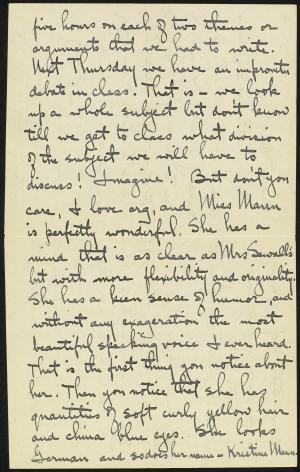 five hours on each of two themes or
arguments that we had to write.
Next Thursday we have an impromtu
debate in class. That is - we look
up a whole subject but don't know
till we get to class what division
of the subject we will have to
discuss! Imagine! But don't you
care, I love arg. and Miss Mann
is perfectly wonderful. She has a
mind that is as clear as Mrs Sewall's
but with more flexibility and originality.
She has a keen sense of humor, and
without any exageration the most
beautiful speaking voice I ever heard.
That is the first thing you notice about
her. Then you notice that she has
quantities of soft curly yellow hair
and china blue eyes. She looks
German and so does her name - Kristine Mann